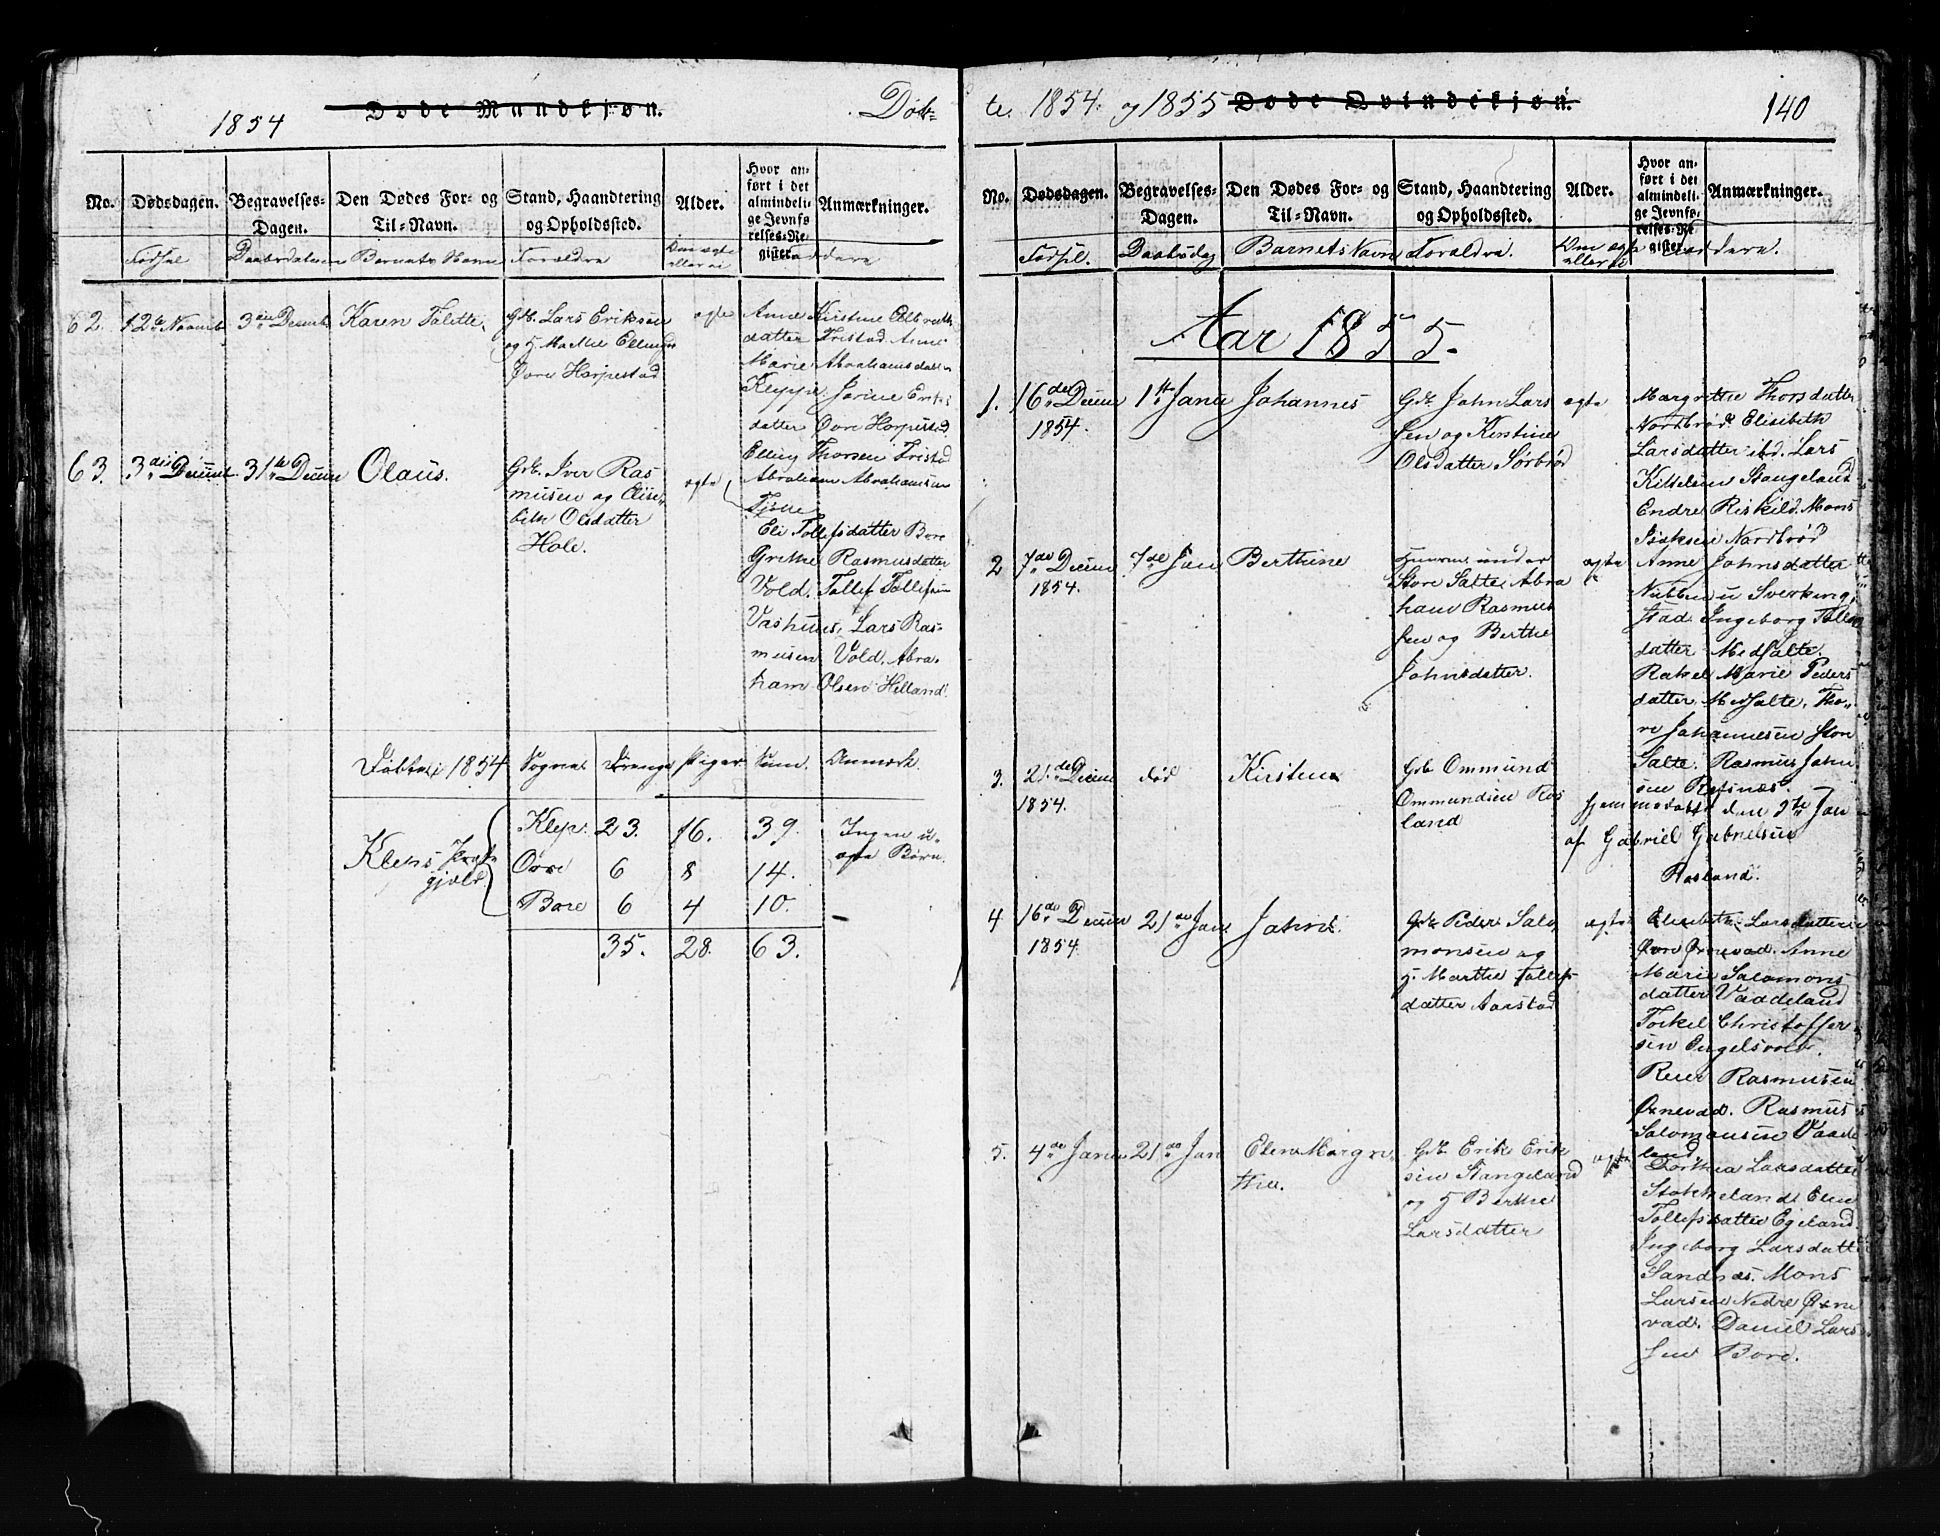 1854
Døde Mandkjøn.
Døb-
No.
Dødsdagen.
Begravelses-
Dagen.
Den Dødes For- og
Til-Navn.
Stand, Haandtering
og Opholdssted.
Alder.
Hvor an-
ført i det
almindeli-
ge Jevnfø-
relses-Re-
gister.
Anmærkninger.
Fødsel
Daabsdatum
Barnets Navn
Forældre
Om ægte
eller ei
Faddere
62.
12te Novemb
3die Decemb
Karen Tolette.
Gdb. Lars Eriksen
og H. Marthe Ellings
Øvre Horpestad
ægte
Anne Kirstine Albrecht
datter Fristad. Anne
Marie Abrahamsdatter
Kleppe. Jorine Eriks
datter Øvre Horpestad
Elling Thorsen Fristad
Abraham Abrahamsen
Tjøtte
63.
3die Decemb.
31te Decem
Olaus.
Gdb. Iver Ras-
musen og Elise-
beth Olsdatter
Hole.
ægte
Eli Tollefsdatter Bore
Grethe Rasmusdatter
Vold. Tollef Tollefsen
Vashuus, Lars Ras-
musen Vold. Abra-
ham Olsen Helland.
Døbte i 1854
Sogne
Drenge
Piger
Sum.
Anmærk.
Kleps Præste
gjæld.
Klep. 23. 16. 39.
Ingen u-
ægte Børn.
Orre 6 8 14.
Bore 6 4 10.
35. 28. 63.
te. 1854. og 1855
Døde Qvindekjøn.
140
No.
Dødsdagen.
Begravelses-
Dagen.
Den Dødes For- og
Til-Navn.
Stand, Haandtering
og Opholdssted.
Alder.
Hvor an-
ført i det
almindeli-
ge Jevnfø-
relses-Re-
gister.
Anmærkninger.
Fødsel.
Daabsdag
Barnets Navn
Forældre.
Om ægte
eller ei
Faddere.
Aar 1855.
1.
16de Decem
1854.
1ste Janu
Johannes
Gdb. John Lars
sen og Kirstine
Olsdatter Sørbrød
ægte
Margrethe Thorsdatter
Nordbrød. Elisebeth
Larsdatter ibd. Lars
Kittelsen Stangeland
Endre Riskild. Mons
Isaksen Nordbrød
2
7de Decem
1854.
7de Jan
Berthine
under
Store Salte, Abra
ham Rasmus
sen og Berthe
Johnsdatter.
ægte
Anne Johnsdatter
Nubben u Sverting-
stad. Ingeborg Tollefs
datter Medsalte.
Rakel Marie Peders
datter Medsalte, Tho-
re Johannesen Store
Salte. Rasmus John
sen Refsnæs.
3.
21de Decem
1854.
død
Kirstine
Gdb Ommund
Ommundsen Ros
land
hjemmedøbt den 5te Jan
af Gabriel Gabrielsen
Rosland.
4
16de Decem
1854
21de Jan
John.
Gdb Peder Salo
monsen og
H. Marthe Tollefs
datter Aarstad
ægte
Elisebeth Larsdatter
Øvre Øxnevad. Anne
Marie Salomons
datter Vaadeland
Torkel Christoffer
sen Engelsvold.
Reier Rasmusen
Øxnevad. Rasmus
Salomonsen Vaade
land.
5.
4de Janu
21de Jan
Elen Margre
the.
Gdb Erik Erik
sen Stangeland
og H Berthe
Larsdatter
ægte
Dorthea Larsdatter
Stokkeland. Elen
Tollefsdatter Egeland
Ingeborg Larsdatter
Sandnæs. Mons
Larsen Nedre Øxne
vad. Daniel Lars
sen Bore.